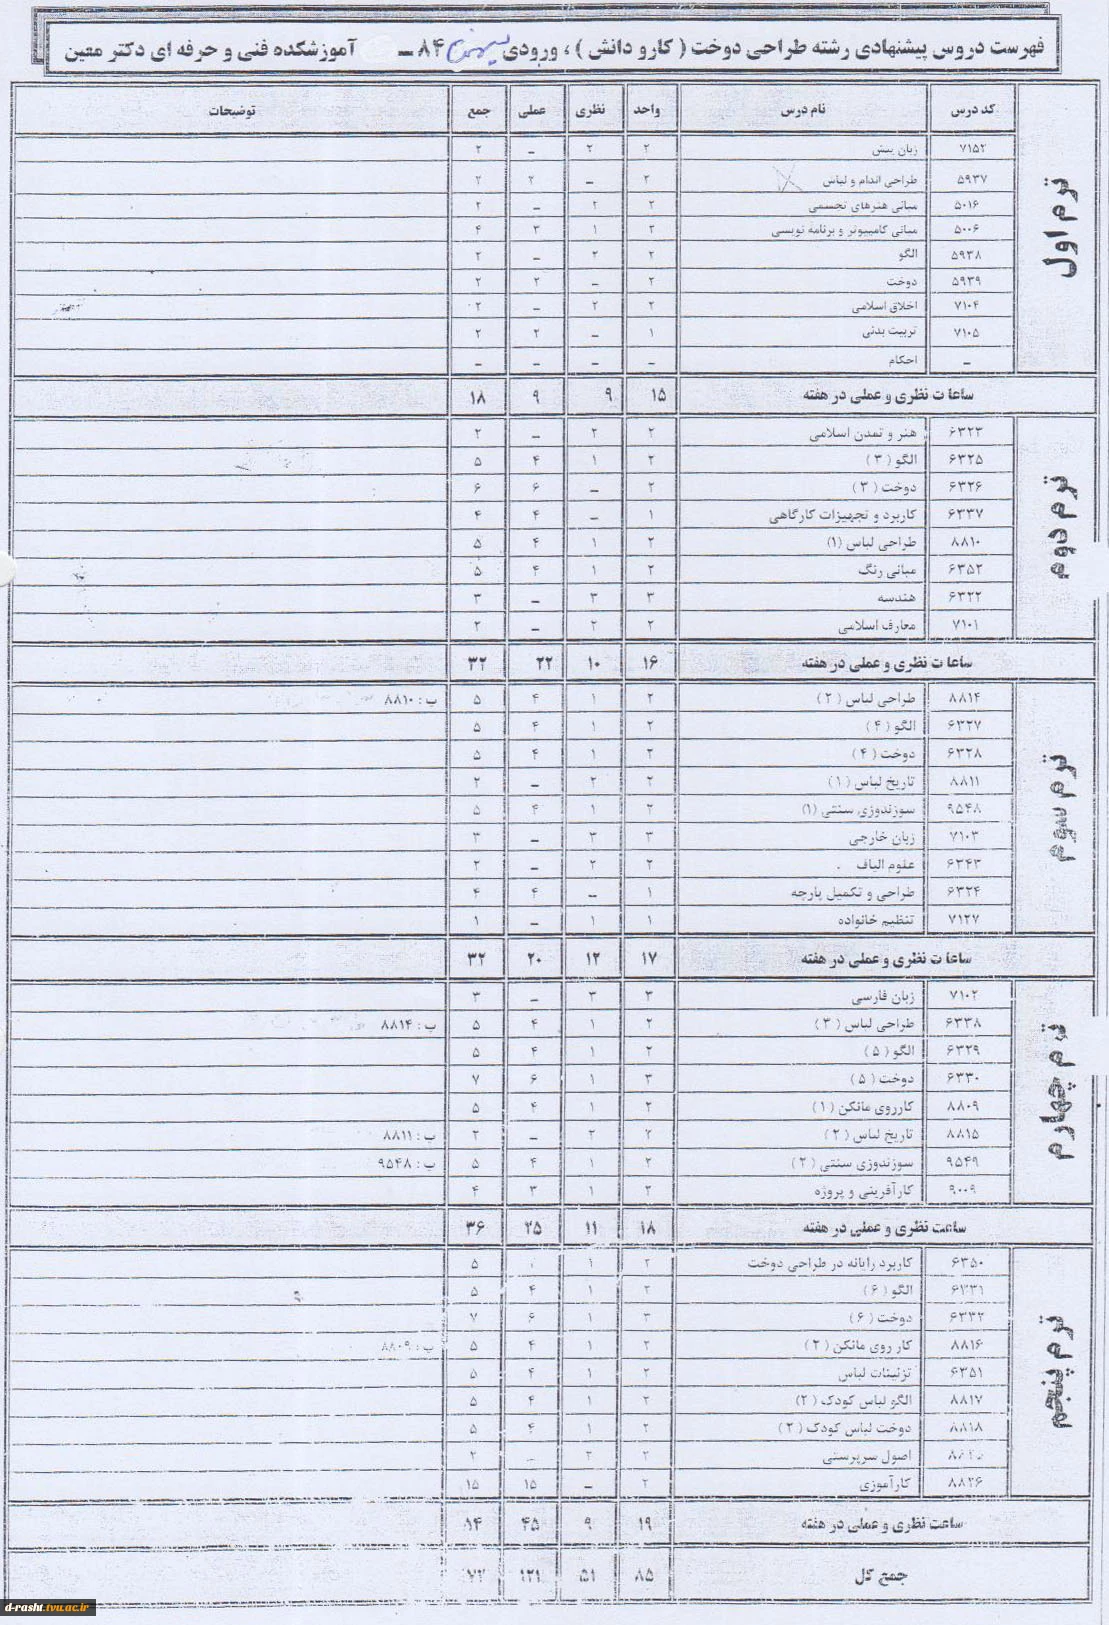 فهرست دروس پیشنهادی رشته طراحی دوخت ( کارو دانش ) ، ورودی ۸۴ - آموزشکده فنی و حرفه ای دکتر معین
کد درس نام درس واحد نظری عملی جمع توضیحات
ترم اول
۷۱۵۲ زبان پیش ۲ ۲ – ۲
۵۹۳۷ طراحی اندام و لباس ۲ – ۲ ۲
۵۰۱۶ مبانی هنرهای تجسمی ۲ ۲ – ۲
۵۰۰۶ مبانی کامپیوتر و برنامه نویسی ۲ ۱ ۳ ۴
۵۹۳۸ الگو ۲ ۲ – ۲
۵۹۳۹ دوخت ۲ – ۲ ۲
۷۱۰۴ اخلاق اسلامی ۲ ۲ – ۲
۷۱۰۵ تربیت بدنی ۱ – ۲ ۲
– احکام – – – –
ساعات نظری و عملی در هفته ۱۵ ۹ ۹ ۱۸
ترم دوم
۶۳۲۳ هنر و تمدن اسلامی ۲ ۲ – ۲
۶۳۲۵ الگو ( ۳ ) ۲ ۱ ۴ ۵
۶۳۲۶ دوخت ( ۳ ) ۲ – ۶ ۶
۶۳۳۷ کاربرد و تجهیزات کارگاهی ۱ – ۴ ۴
۸۸۱۰ طراحی لباس (۱) ۲ ۱ ۴ ۵
۶۳۵۲ مبانی رنگ ۲ ۱ ۴ ۵
۶۳۲۲ هندسه ۳ ۳ – ۳
۷۱۰۱ معارف اسلامی ۲ ۲ – ۲
ساعات نظری و عملی در هفته ۱۶ ۱۰ ۲۲ ۳۲
ترم سوم
۸۸۱۴ طراحی لباس ( ۲ ) ۲ ۱ ۴ ۵ ب : ۸۸۱۰
۶۳۲۷ الگو ( ۴ ) ۲ ۱ ۴ ۵
۶۳۲۸ دوخت ( ۴ ) ۲ ۱ ۴ ۵
۸۸۱۱ تاریخ لباس ( ۱ ) ۲ ۲ – ۲
۹۵۴۸ سوزندوزی سنتی (۱) ۲ ۱ ۴ ۵
۷۱۰۳ زبان خارجی ۳ ۳ – ۳
۶۳۴۳ علوم الیاف ۲ ۲ – ۲
۶۳۲۴ طراحی و تکمیل پارچه ۱ – ۴ ۴
۷۱۲۷ تنظیم خانواده ۱ ۱ – ۱
ساعات نظری و عملی در هفته ۱۷ ۱۲ ۲۰ ۳۲
ترم چهارم
۷۱۰۲ زبان فارسی ۳ ۳ – ۳
۶۳۳۸ طراحی لباس ( ۳ ) ۲ ۱ ۴ ۵ ب : ۸۸۱۴
۶۳۲۹ الگو ( ۵ ) ۲ ۱ ۴ ۵
۶۳۳۰ دوخت ( ۵ ) ۳ ۱ ۶ ۷
۸۸۰۹ کارروی مانکن ( ۱ ) ۲ ۱ ۴ ۵
۸۸۱۵ تاریخ لباس ( ۲ ) ۲ ۲ – ۲ ب : ۸۸۱۱
۹۵۴۹ سوزندوزی سنتی ( ۲ ) ۲ ۱ ۴ ۵ ب : ۹۵۴۸
۹۰۰۹ کارآفرینی و پروژه ۲ ۱ ۳ ۴
ساعت نظری و عملی در هفته ۱۸ ۱۱ ۲۵ ۳۶
ترم پنجم
۶۳۵۰ کاربرد رایانه در طراحی دوخت ۲ ۱ ۵
۶۳۳۱ الگو ( ۶ ) ۲ ۱ ۴ ۵
۶۳۳۲ دوخت ( ۶ ) ۳ ۱ ۶ ۷
۸۸۱۶ کار روی مانکن ( ۲ ) ۲ ۱ ۴ ۵ ب : ۸۸۰۹
۶۳۵۱ تزئینات لباس ۲ ۱ ۴ ۵
۸۸۱۷ الگو لباس کودک ( ۲ ) ۲ ۱ ۴ ۵
۸۸۱۸ دوخت لباس کودک ( ۲ ) ۲ ۱ ۴ ۵
اصول سرپرستی ۲ ۲ – ۲
۸۸۲۶ کارآموزی ۲ – ۱۵ ۱۵
ساعت نظری و عملی در هفته ۱۹ ۹ ۴۵ ۵۴
جمع کل ۸۵ ۵۱ ۱۲۱ ۷۲
d-rasht.tvu.ac.ir